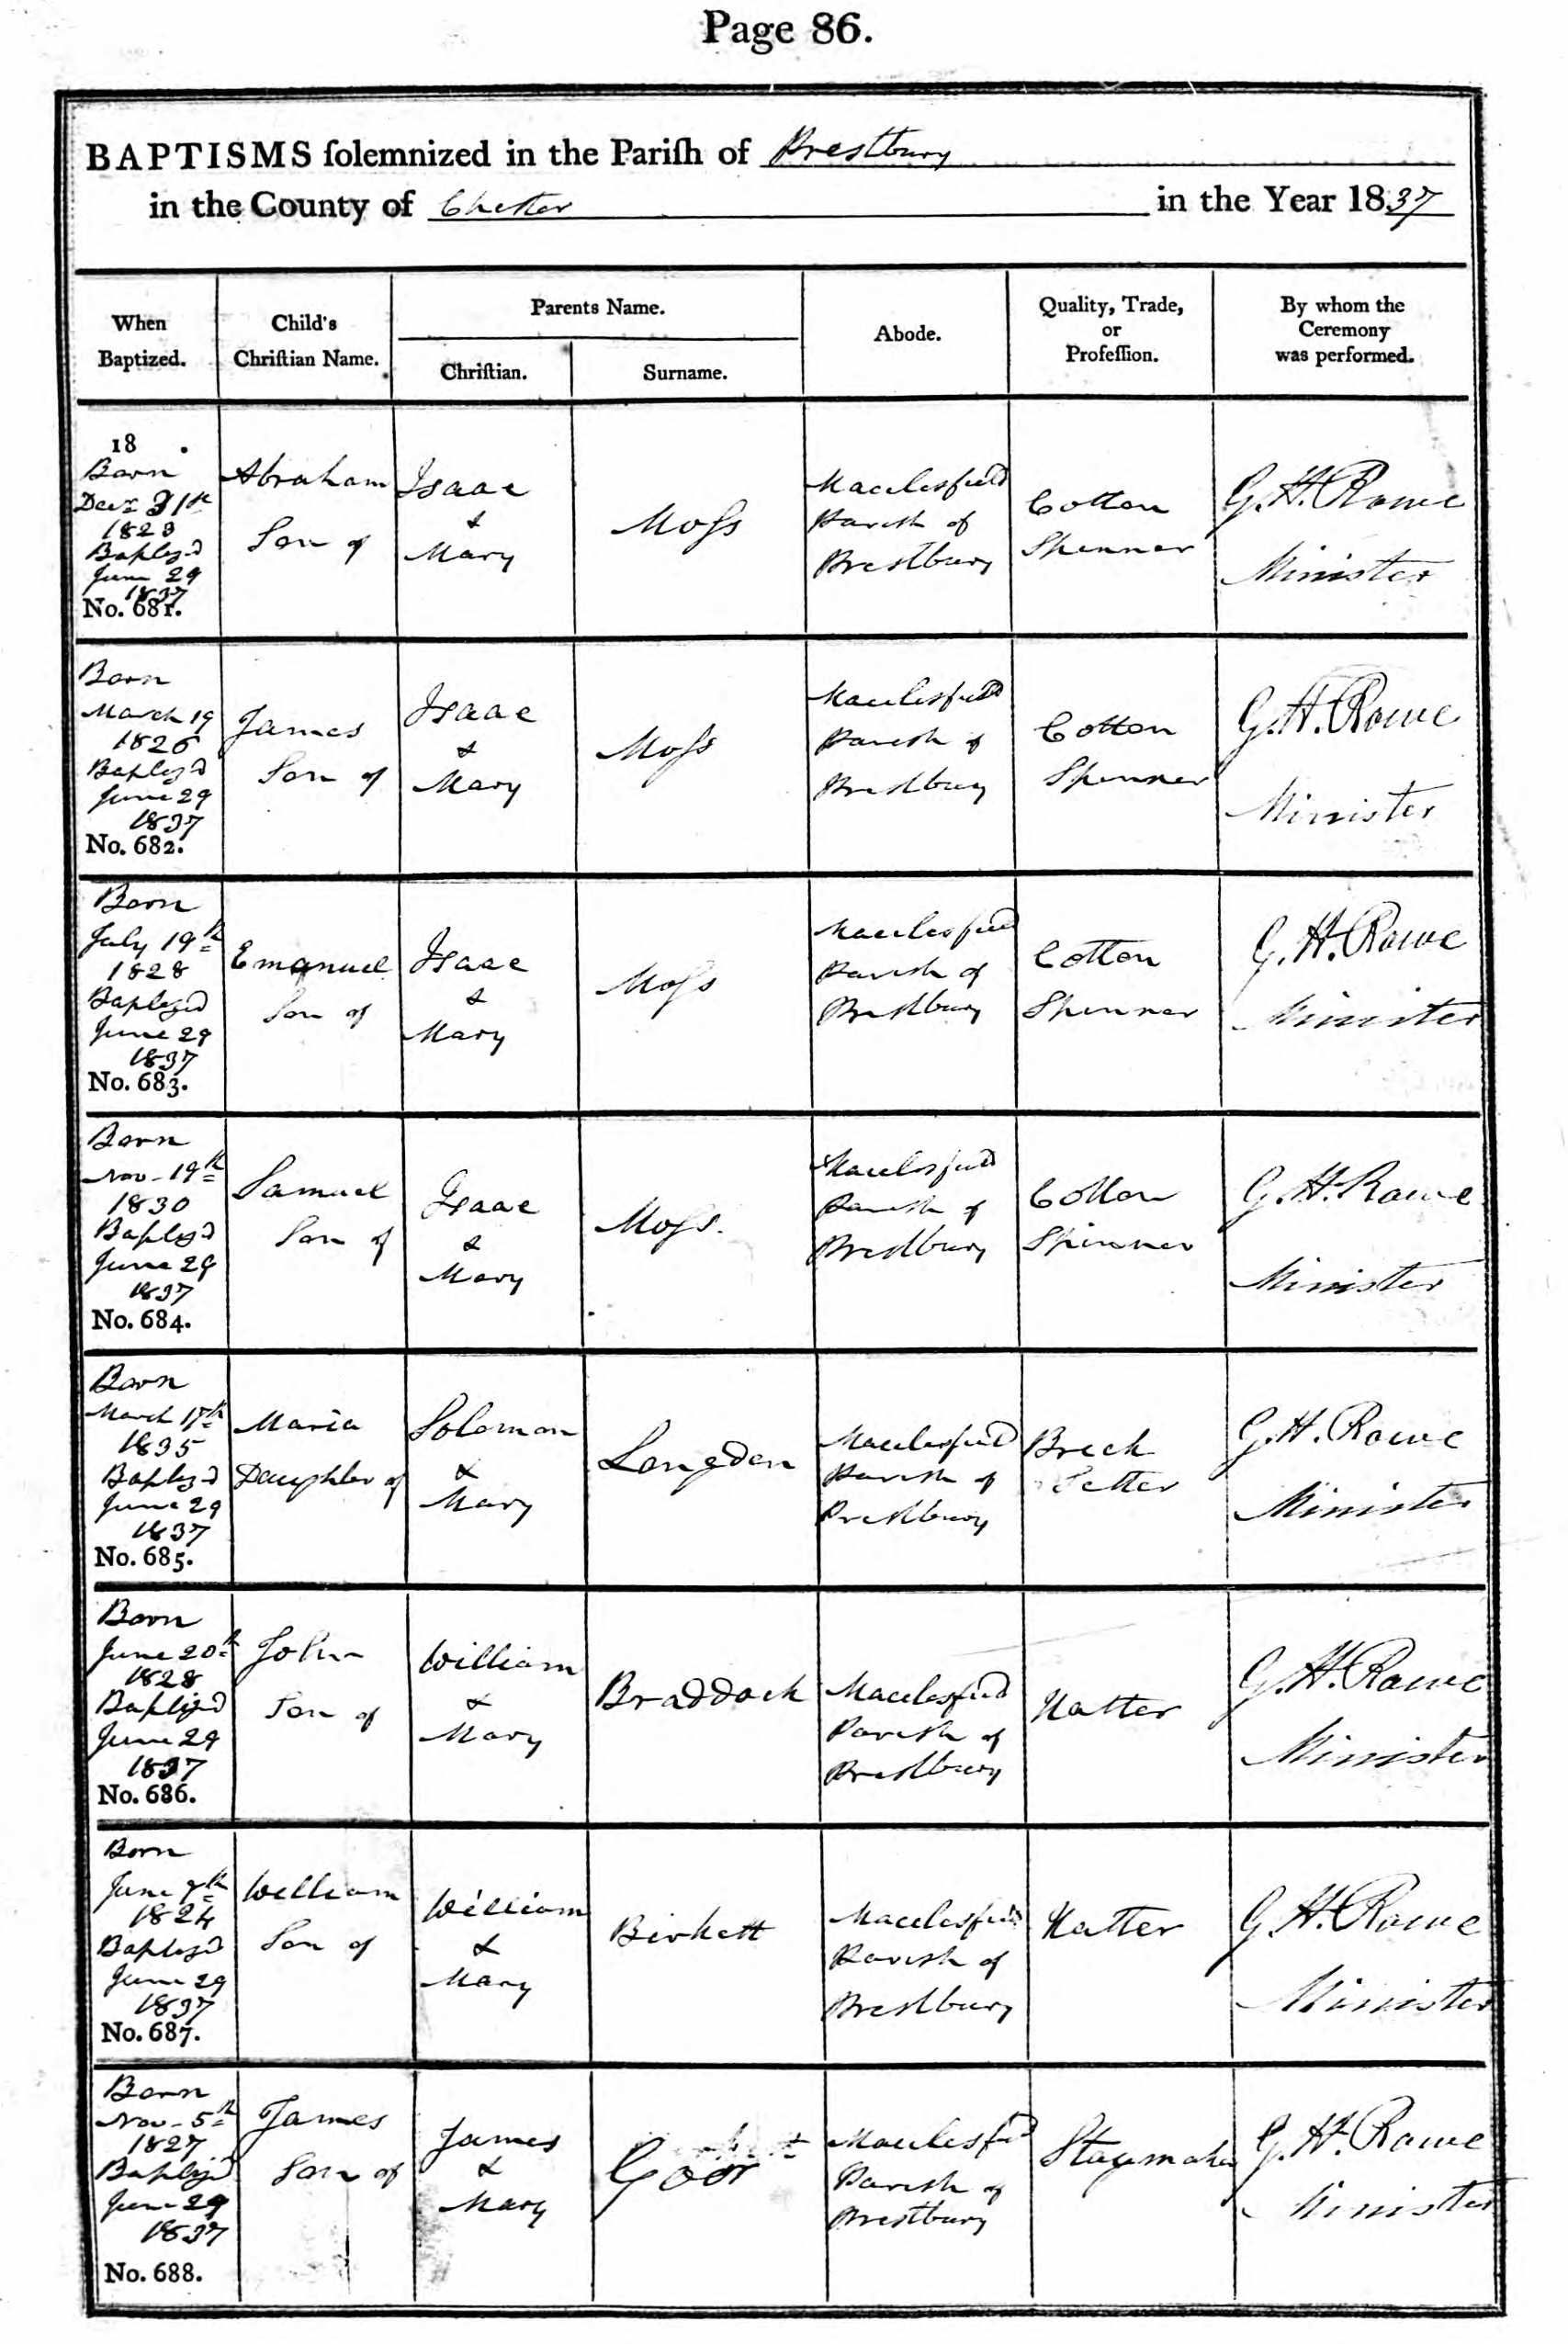 Page 86.
BAPTISMS ſolemnized in the Pariſh of Prestbury
in the County of Chester in the Year 1837
When
Baptized.
Child's
Chriſtian Name.
Parents Name.
Chriſtian.
Surname.
Abode.
Quality, Trade,
or
Profeſſion.
By whom the
Ceremony
was performed.
18
Born
Decr 31st
1823
Baptiz'd
June 29
1837
No. 681.
Abraham
Son of
Isaac
&
Mary
Moſs
Macclesfield
Parish of
Prestbury
Cotton
Spinner
G. H. Rowe
Minister
Born
March 19
1826
Baptiz'd
June 29
1837
No. 682.
James
Son of
Isaac
&
Mary
Moſs
Macclesfield
Parish of
Prestbury
Cotton
Spinner
G. H. Rowe
Minister
Born
July 19th
1828
Baptized
June 29
1837
No. 683.
Emanuel
Son of
Isaac
&
Mary
Moſs
Macclesfield
Parish of
Prestbury
Cotton
Spinner
G. H. Rowe
Minister
Born
Nov. 19th
1830
Baptiz'd
June 29
1837
No. 684.
Samuel
Son of
Isaac
&
Mary
Moſs.
Macclesfield
Parish of
Prestbury
Cotton
Spinner
G. H. Rowe
Minister
Born
March 17th
1835
Baptiz'd
June 29
1837
No. 685.
Maria
Daughter of
Solomon
&
Mary
Longden
Macclesfield
Parish of
Prestbury
Brick
Setter
G. H. Rowe
Minister
Born
June 20th
1828
Baptiz'd
June 29
1837
No. 686.
John
Son of
William
&
Mary
Braddock
Macclesfield
Parish of
Prestbury
Hatter
G. H. Rowe
Minister
Born
June 7th
1824
Baptiz'd
June 29
1837
No. 687.
William
Son of
William
&
Mary
Birkett
Macclesfield
Parish of
Prestbury
Hatter
G. H. Rowe
Minister
Born
Nov. 5th
1827
Baptiz'd
June 29
1837
No. 688.
James
Son of
James
&
Mary
Macclesfield
Parish of
Prestbury
Staymaker
G. H. Rowe
Minister